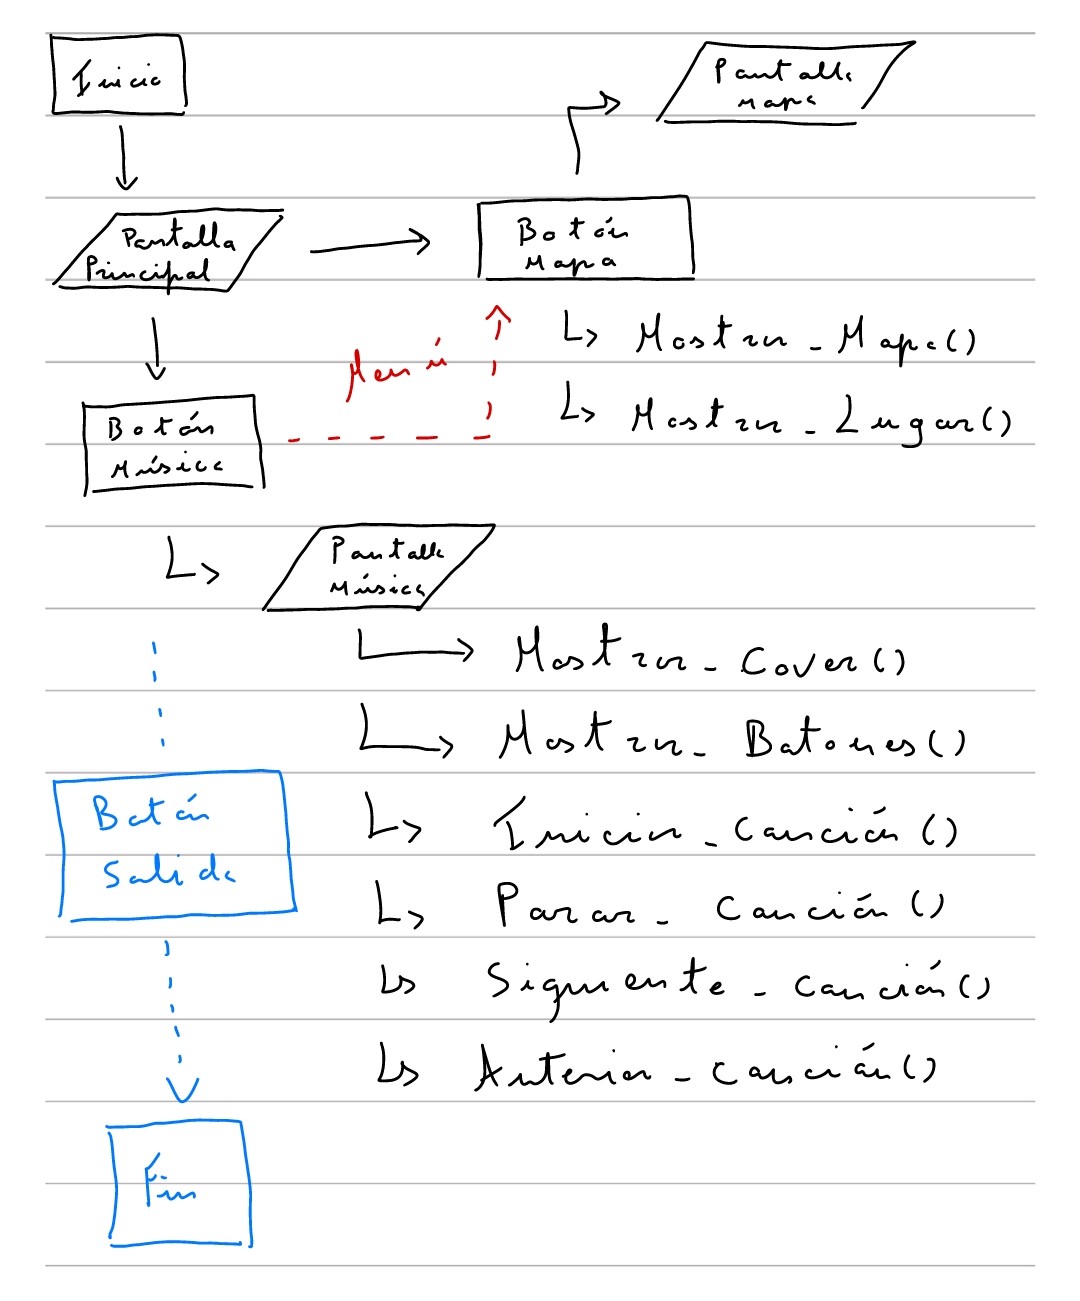 Inicio
Pantalla
Mapa
Pantalla
Principal
Botón
Mapa
Mostrar_Mapa()
Menú
Mostrar_Lugar()
Botón
Música
Pantalla
Música
Mostrar_Cover()
Mostrar_Botones()
Botón
Salida
Iniciar_Canción()
Parar_Canción()
Siguiente_Canción()
Anterior_Canción()
Fin